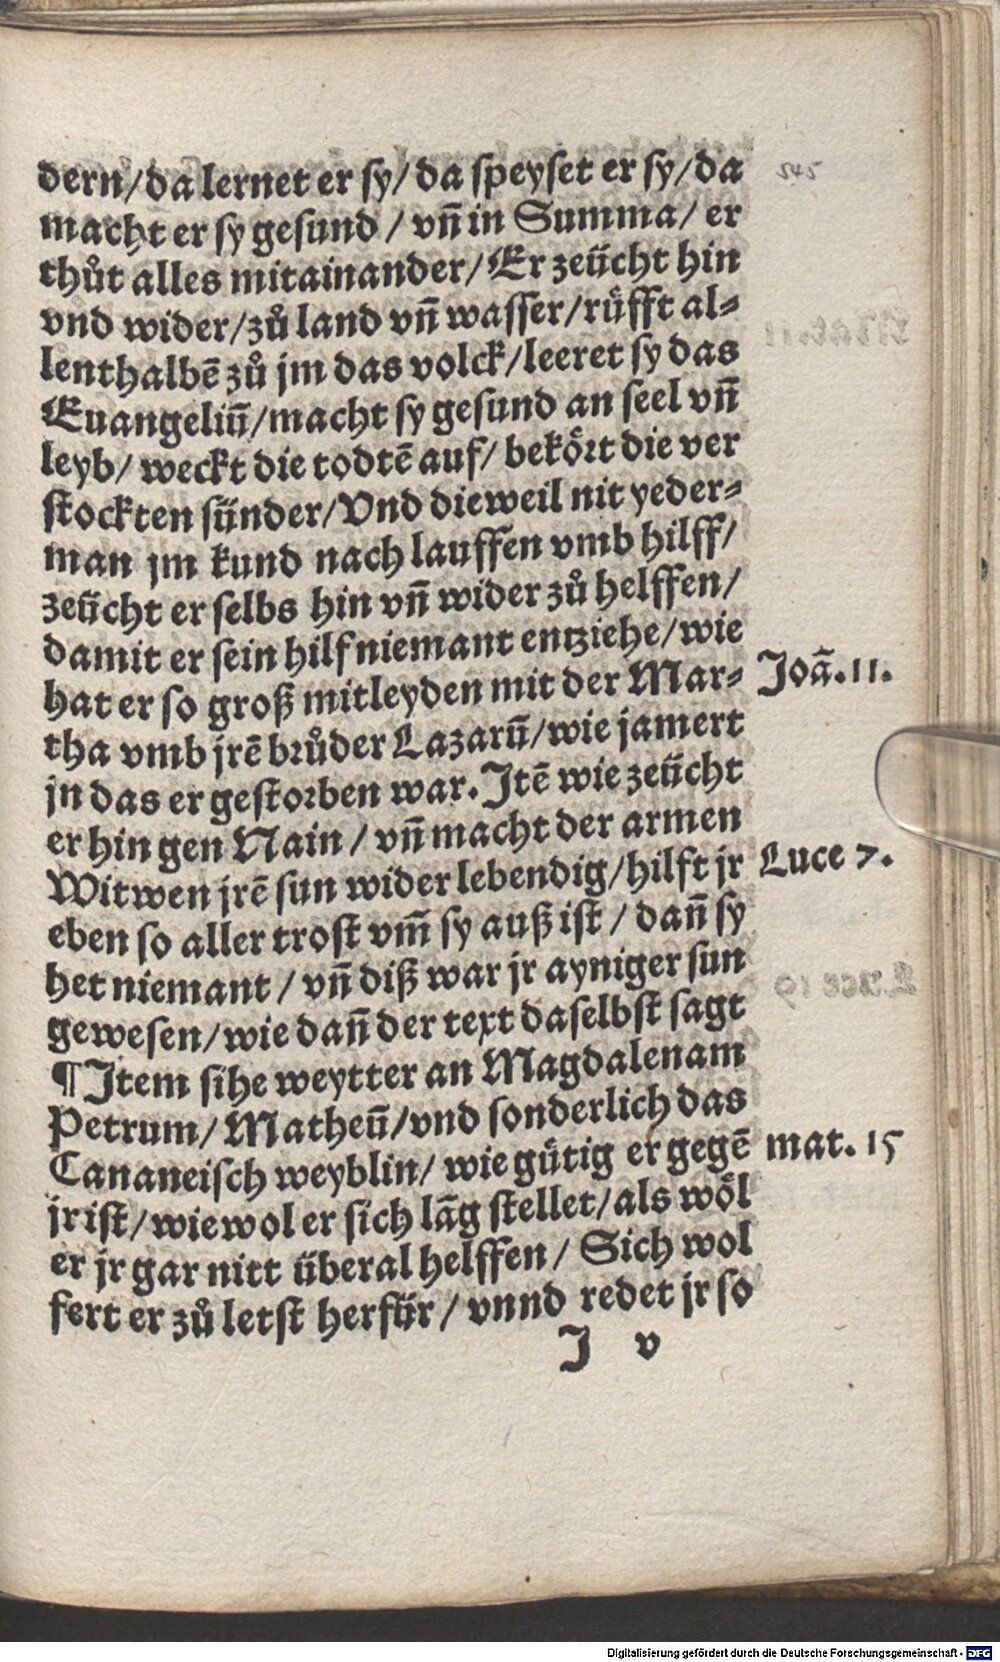 dern/da lernet er sy/da speyset er sy/da
macht er sy gesund / vñ in Summa/ er
thůt alles mitainander/Er zeücht hin
vnd wider/zů land vñ wasser/rüfft al=
lenthalbē zů jm das volck/leeret sy das
Euangeliū/macht sy gesund an seel vñ
leyb/ weckt die todtē auf/ bekört die ver
stockten sünder/Vnd dieweil nit yeder=
man jm kund nach lauffen vmb hilff/
zeücht er selbs hin vñ wider zů helffen/
damit er sein hilf niemant entziehe/wie
hat er so groß mitleyden mit der Mar= Joā.11.
tha vmb jrē brůder Lazarū/wie jamert
jn das er gestorben war. Jtē wie zeücht
er hin gen Nain / vñ macht der armen
Witwen jrē sun wider lebendig/hilft jr Luce 7.
eben so aller trost vm̃ sy auß ist / dañ sy
het niemant / vñ diß war jr ayniger sun
gewesen/wie dañ der text daselbst sagt
¶Jtem sihe weytter an Magdalenam
Petrum/Matheū/vnd sonderlich das
Cananeisch weyblin/ wie gütig er gegē mat. 15
jr ist/wiewol er sich lāg stellet/als wöl
er jr gar nitt überal helffen/ Sich wol
fert er zů letst herfür / vnnd redet jr so
J v
Digitalisierung gefördert durch die Deutsche Forschungsgemeinschaft - DFG